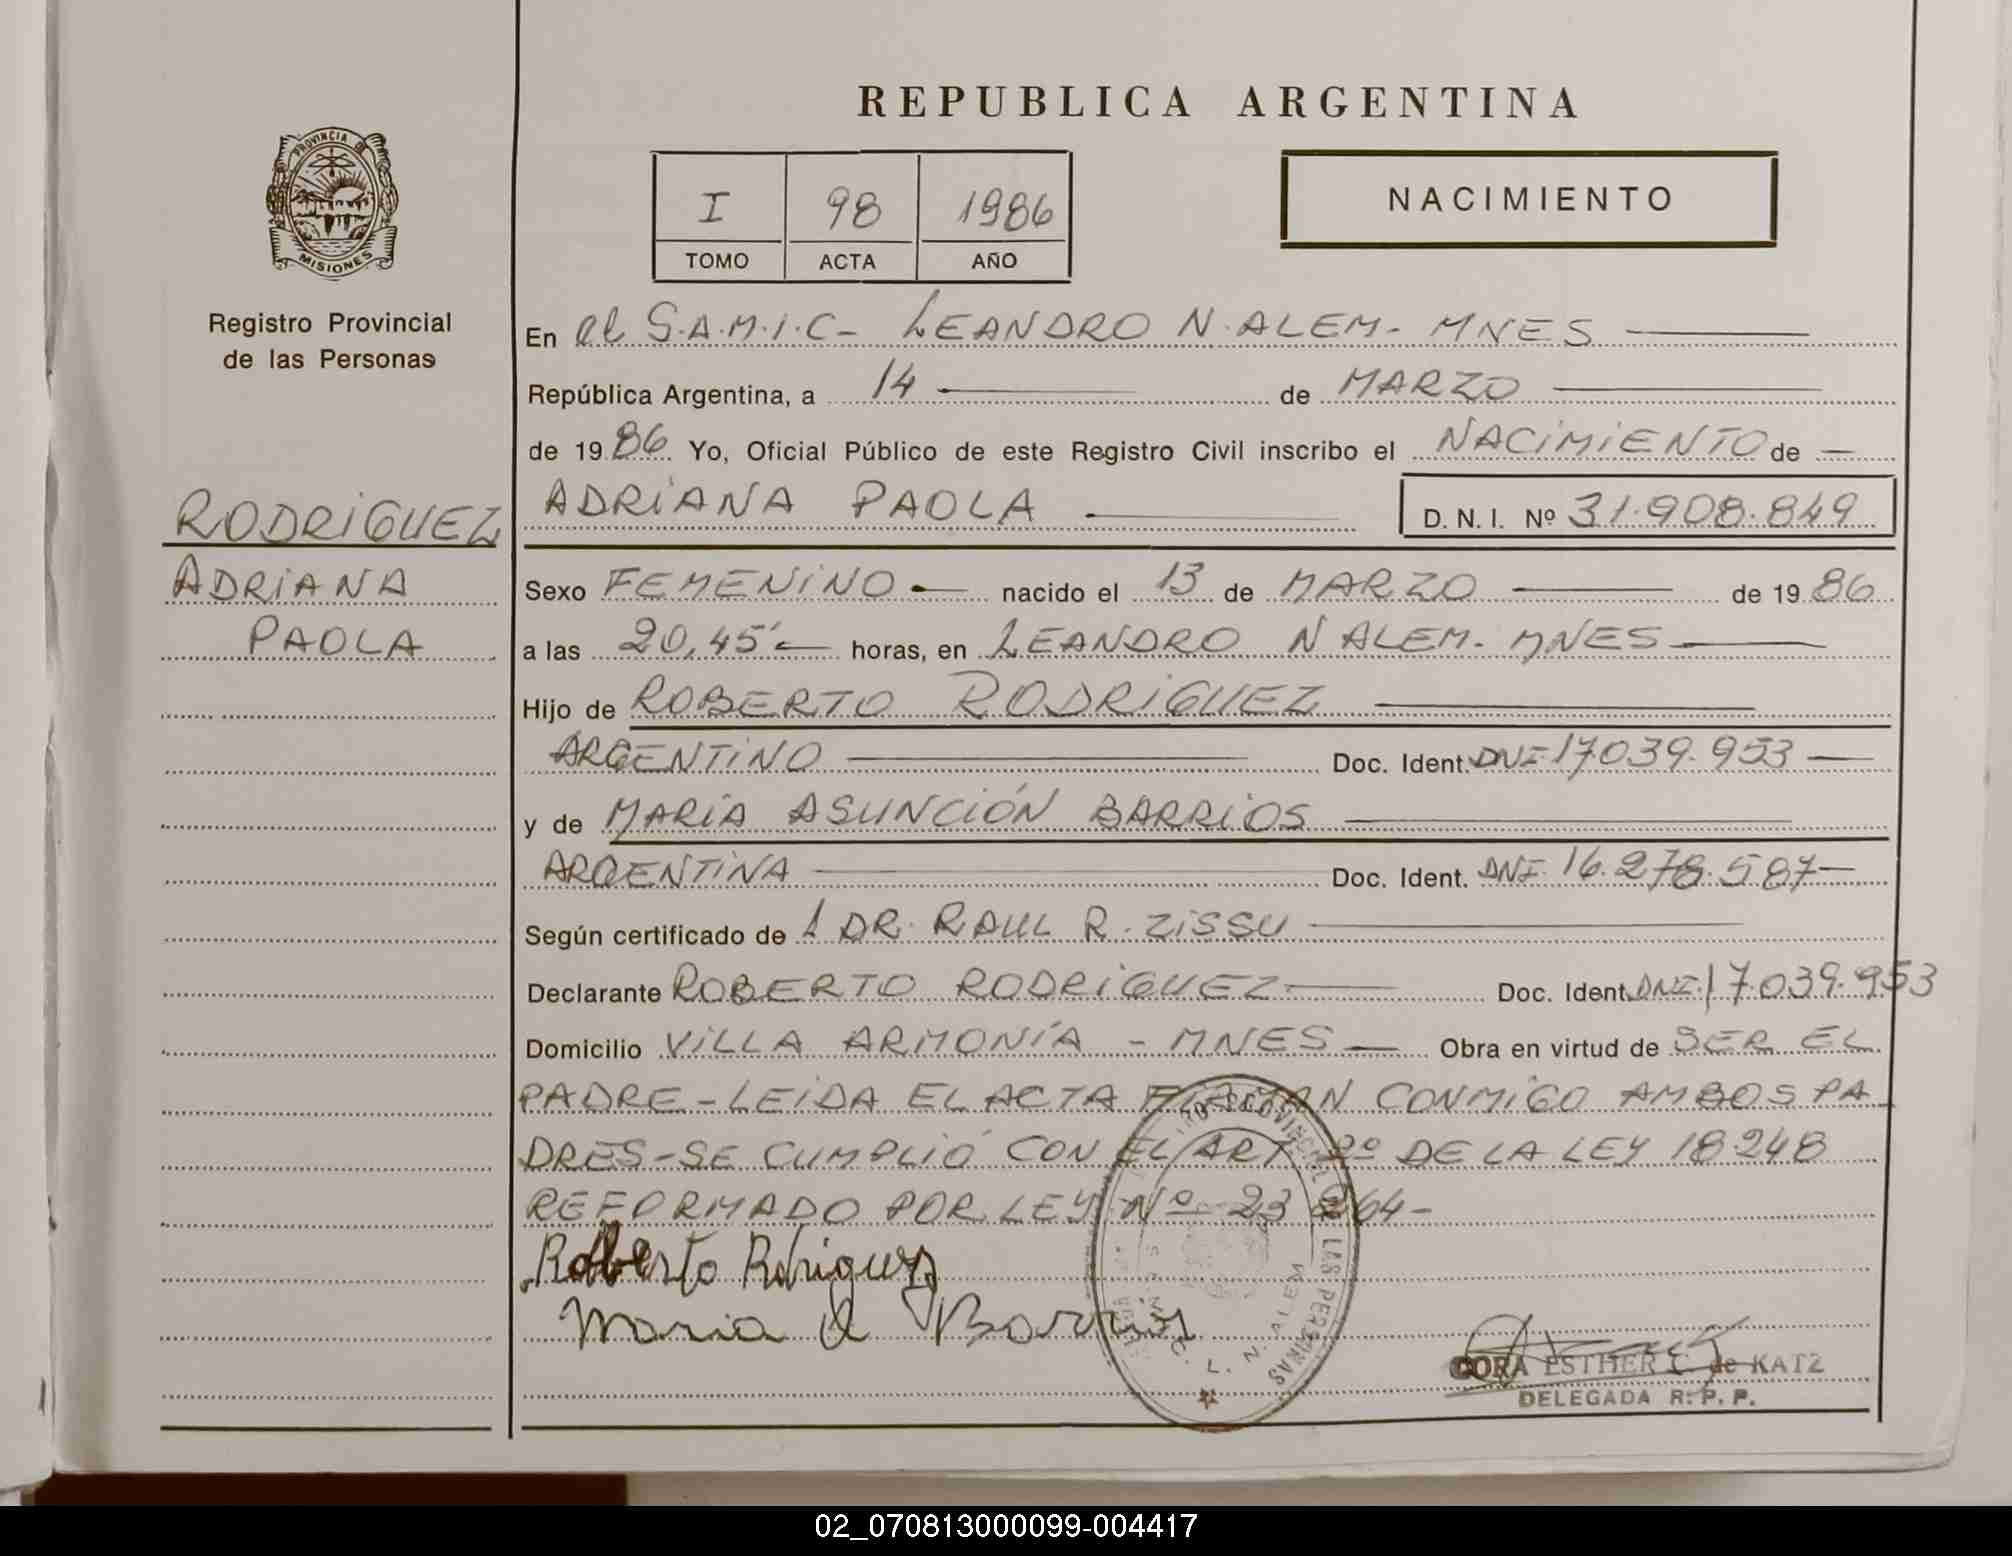 REPUBLICA ARGENTINA
PROVINCIA DE
MISIONES
Registro Provincial
de las Personas
I 98 1986
TOMO ACTA AÑO
NACIMIENTO
En el S.A.M.I.C- LEANDRO N. ALEM- MNES
República Argentina, a 14 de MARZO
de 1986 Yo, Oficial Público de este Registro Civil inscribo el NACIMIENTO de
RODRIGUEZ
ADRIANA PAOLA D. N. I. Nº 31.908.849
ADRIANA
PAOLA
Sexo FEMENINO nacido el 13 de MARZO de 1986
a las 20,45' horas, en LEANDRO N ALEM- MNES
Hijo de ROBERTO RODRIGUEZ
ARGENTINO Doc. Ident. DNI 17.039.953
y de MARÍA ASUNCIÓN BARRIOS
ARGENTINA Doc. Ident. DNI. 16.278.587
Según certificado de 1 DR. RAUL R. ZISSU
Declarante ROBERTO RODRIGUEZ Doc. Ident. DNI. 17.039.953
Domicilio VILLA ARMONÍA - MNES Obra en virtud de SER EL
PADRE-LEIDA EL ACTA FIRMAN CONMIGO AMBOS PA
DRES-SE CUMPLIÓ CON EL ART 2º DE LA LEY 18.248
REFORMADO POR LEY Nº 23 264-
Roberto Rodriguez
Maria A Barrios
PROVINCIAL DE LAS PERSONAS
L. N. ALEM
CORA ESTHER C de KATZ
DELEGADA R. P. P.
02_070813000099-004417